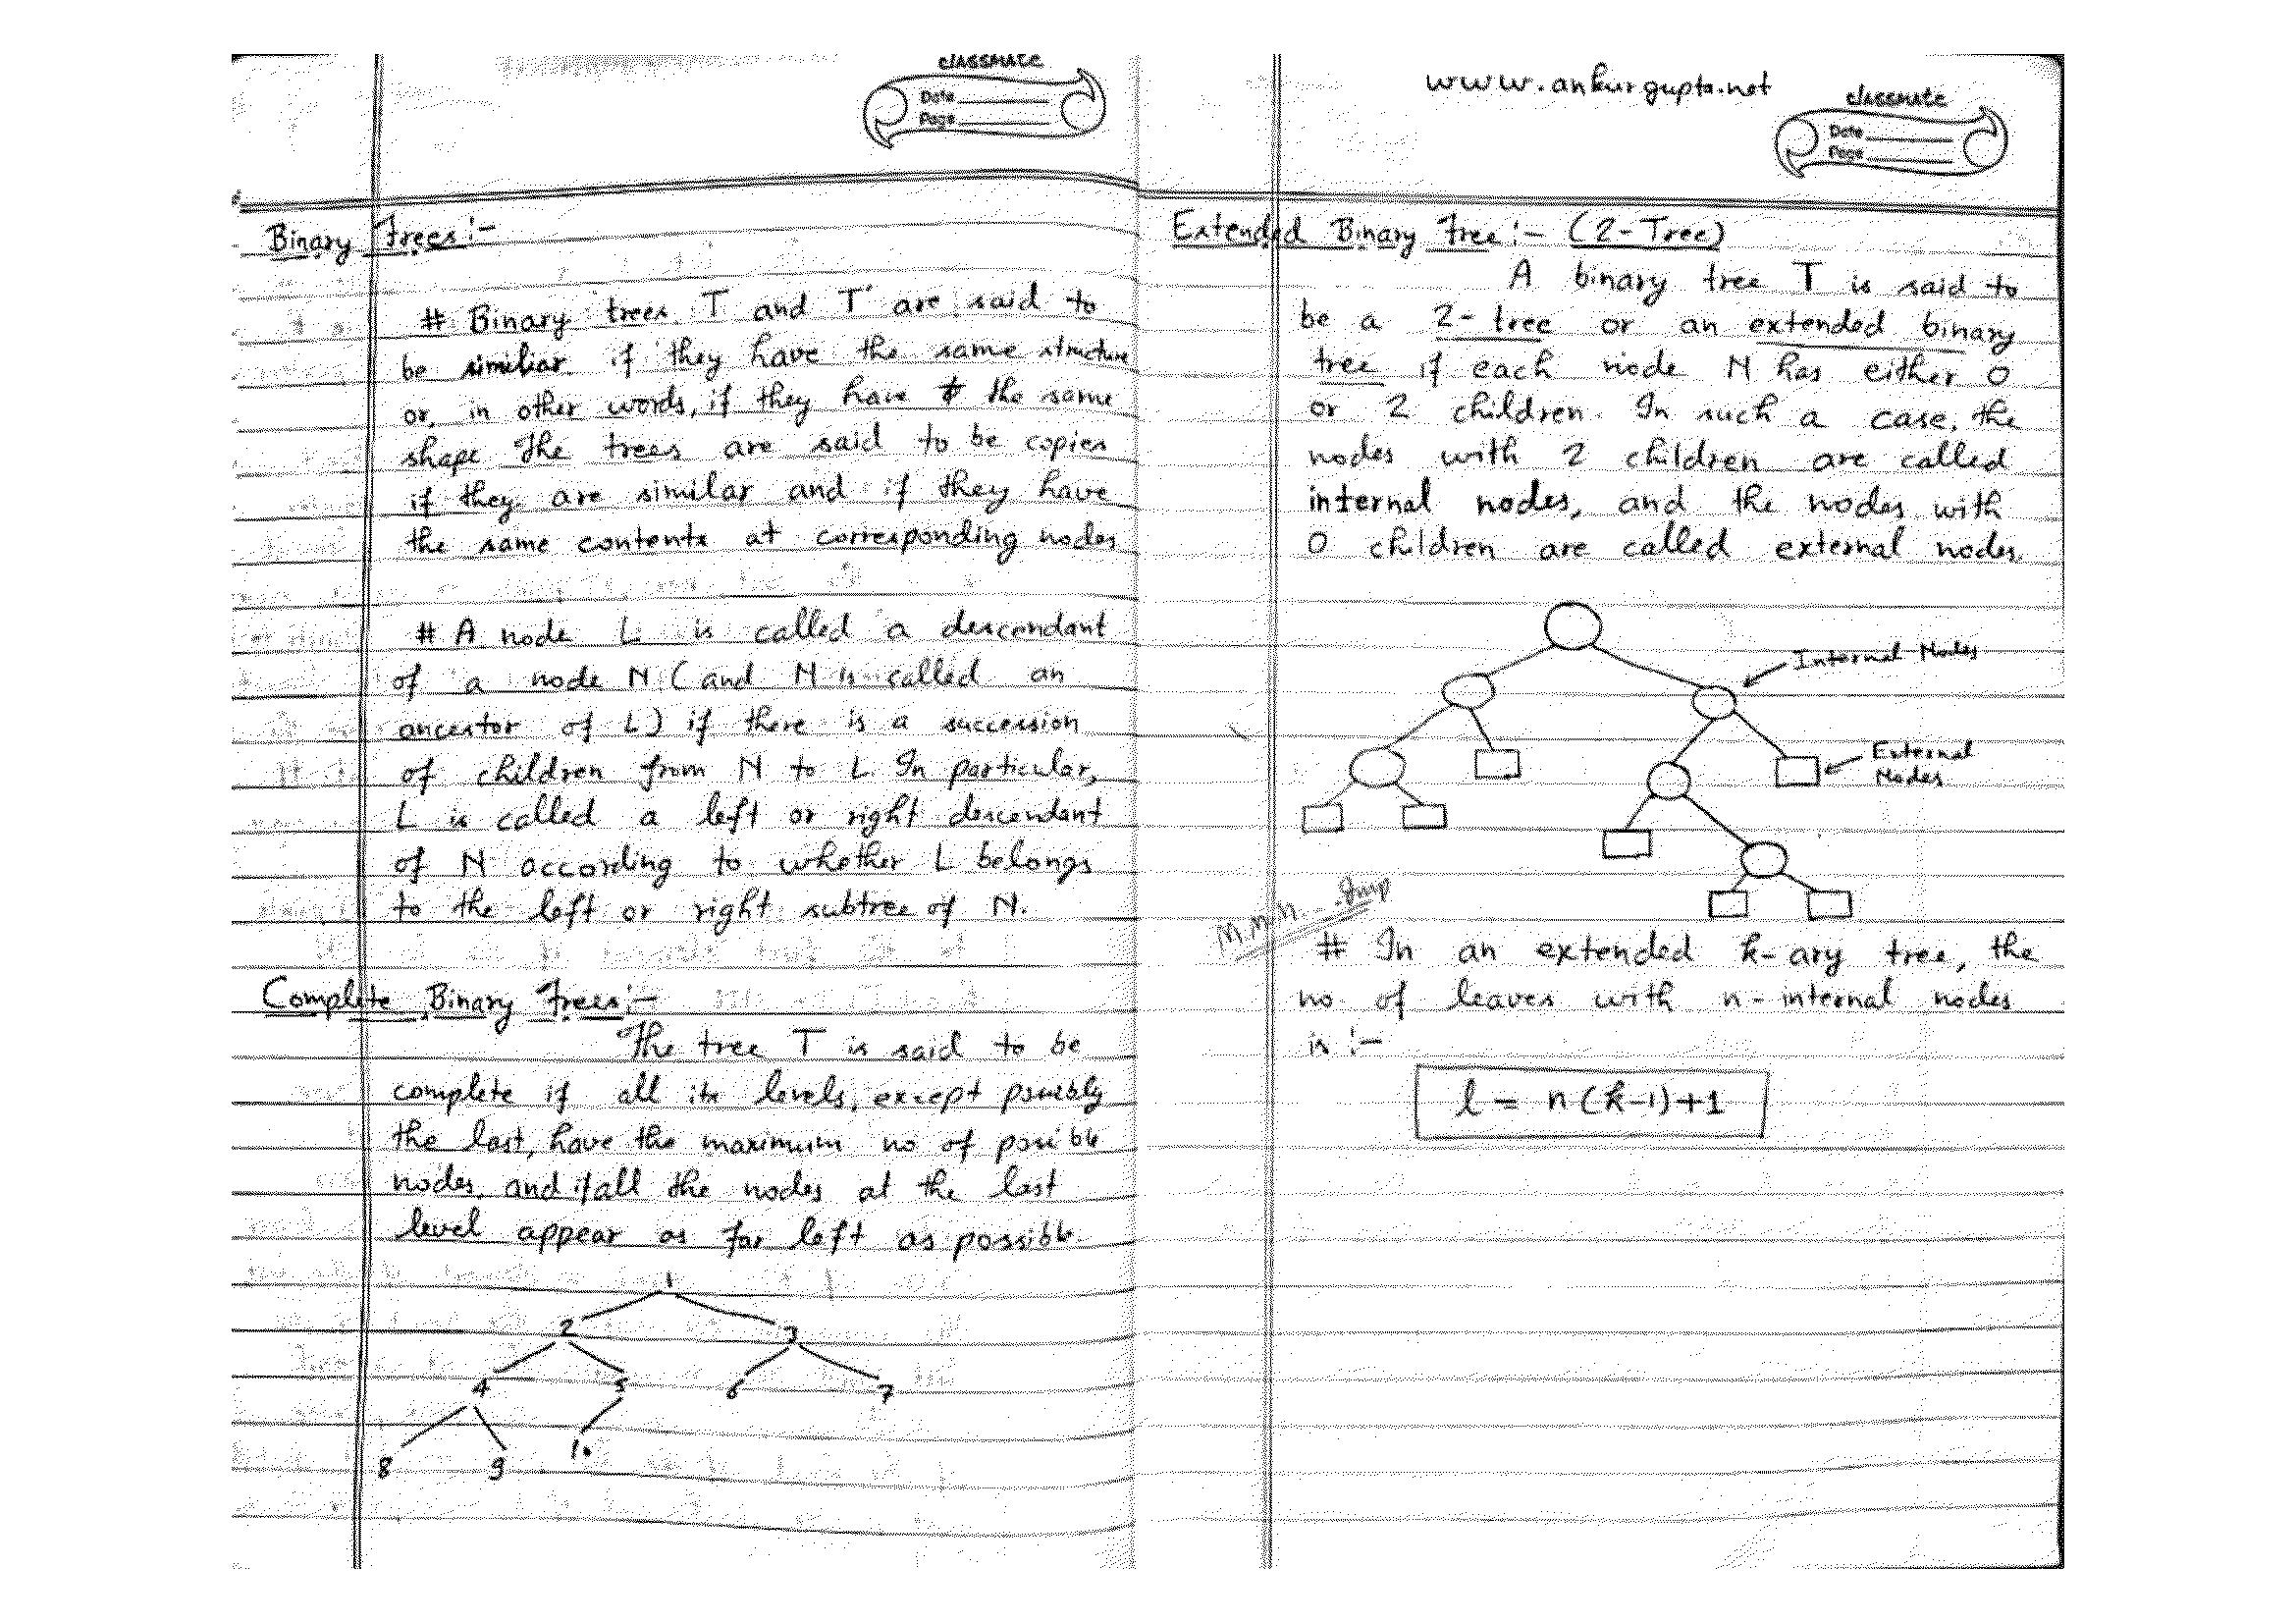 classmate
Date
Page
Binary Trees:-
# Binary trees T and T' are said to
be similiar if they have the same structure
or, in other words, if they have the same
shape The trees are said to be copies
if they are similar and if they have
the same contents at corresponding nodes
# A node L is called a descendant
of a node N (and N is called an
ancestor of L) if there is a succession
of children from N to L. In particular,
L is called a left or right descendant
of N according to whether L belongs
to the left or right subtree of N.
Complete Binary Trees:-
The tree T is said to be
complete if all its levels, except possibly
the last, have the maximum no of possible
nodes, and if all the nodes at the last
level appear as far left as possible.
1
2 3
4 5 6 7
8 9 10
www.ankurgupta.net
classmate
Date
Page
Extended Binary Tree:- (2-Tree)
A binary tree T is said to
be a 2-tree or an extended binary
tree if each node N has either 0
or 2 children. In such a case, the
nodes with 2 children are called
internal nodes, and the nodes with
0 children are called external nodes.
Internal Nodes
External
Nodes
Imp
# In an extended k-ary tree, the
no. of leaves with n-internal nodes
is :-
l = n(k-1)+1